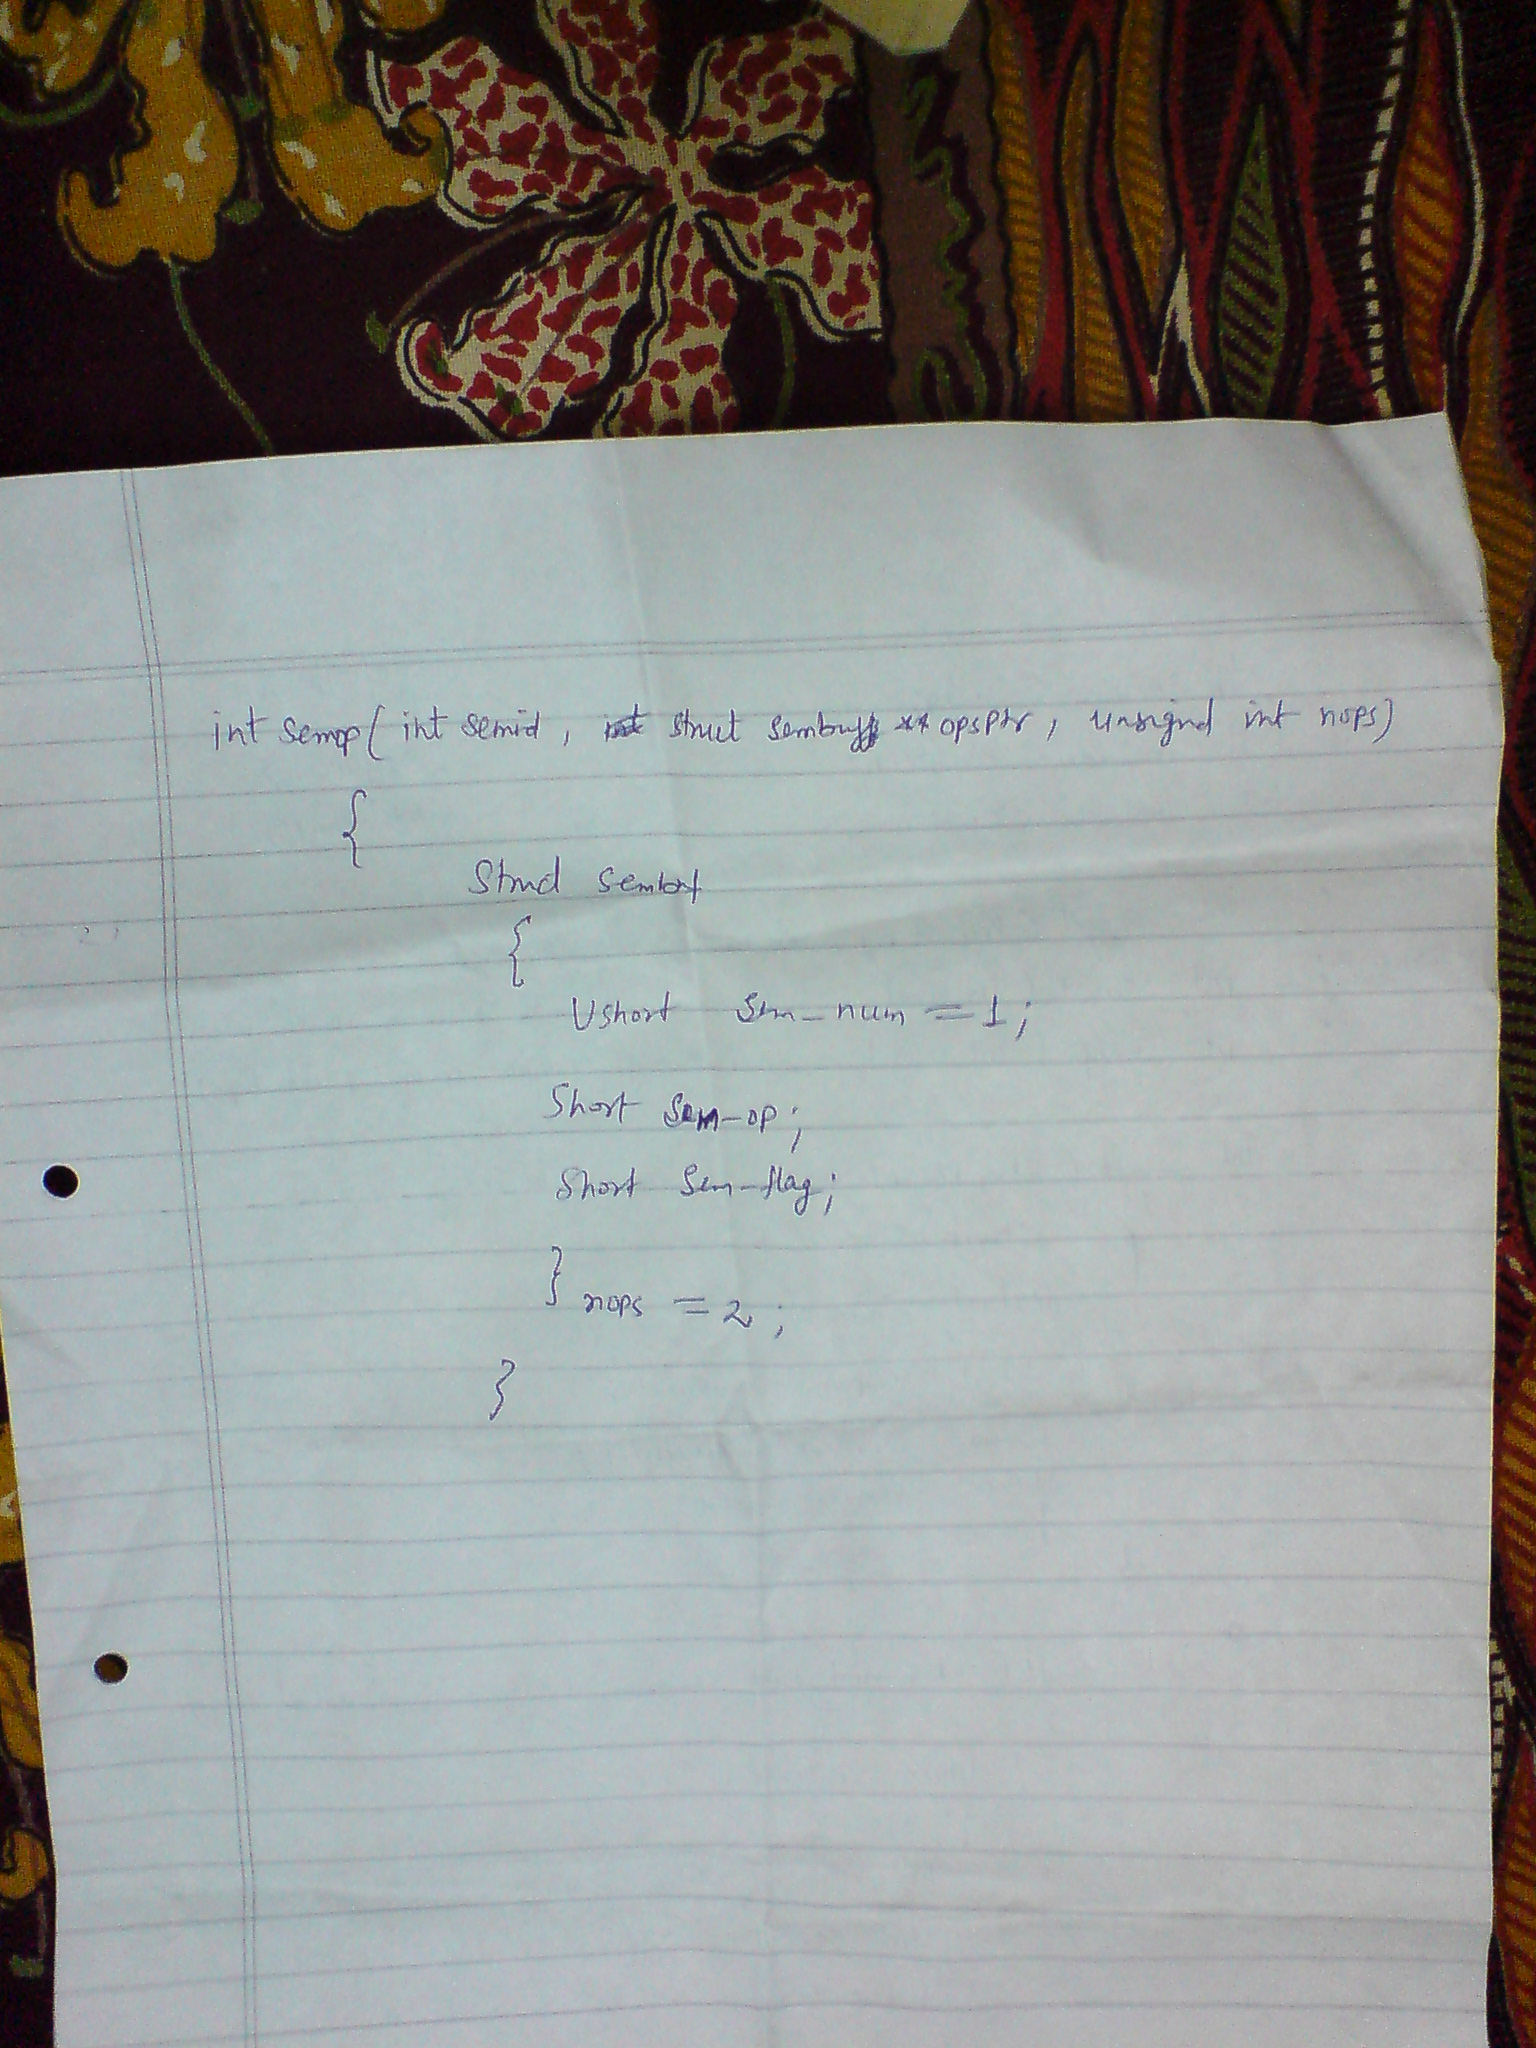 int semop( int semid, struct sembuff ** opsptr, unsigned int nops)
{
Struct sembuf
{
Ushort sem_num = 1;
Short sem-op;
Short sem-flag;
} nops = 2;
}